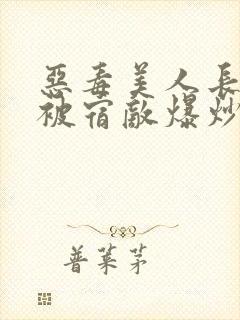 惡毒美人長
被宿敵爆炒
普萊茅